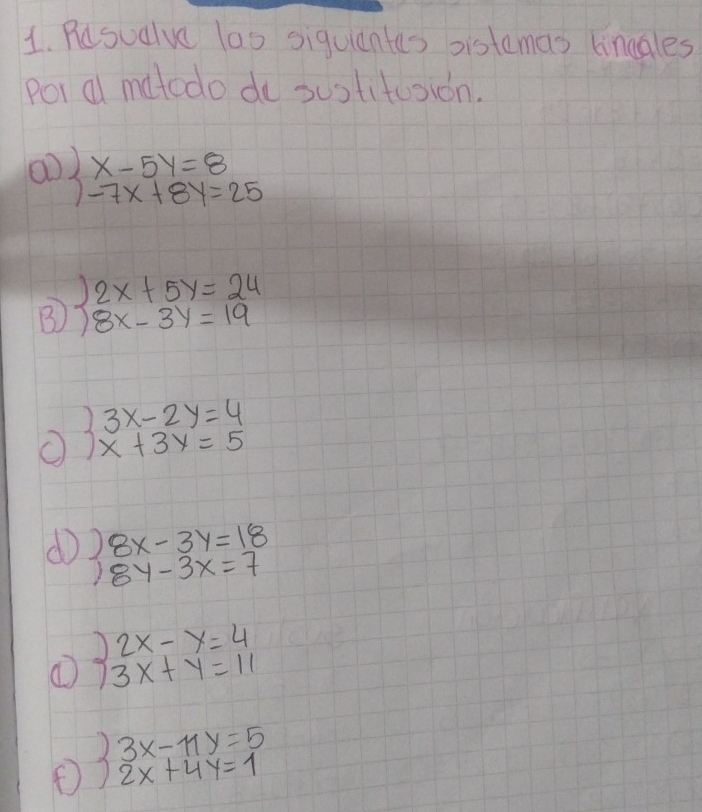 1. Resuelve las siguientes sistemas lineales
Por el metodo de sustitusión.
a) x-5y=8
-7x+8y=25
B) 2x+5y=24
8x-3y=19
c) 3x-2y=4
x+3y=5
d) 8x-3y=18
8y-3x=7
e) 2x-y=4
3x+y=11
f) 3x-11y=5
2x+4y=1